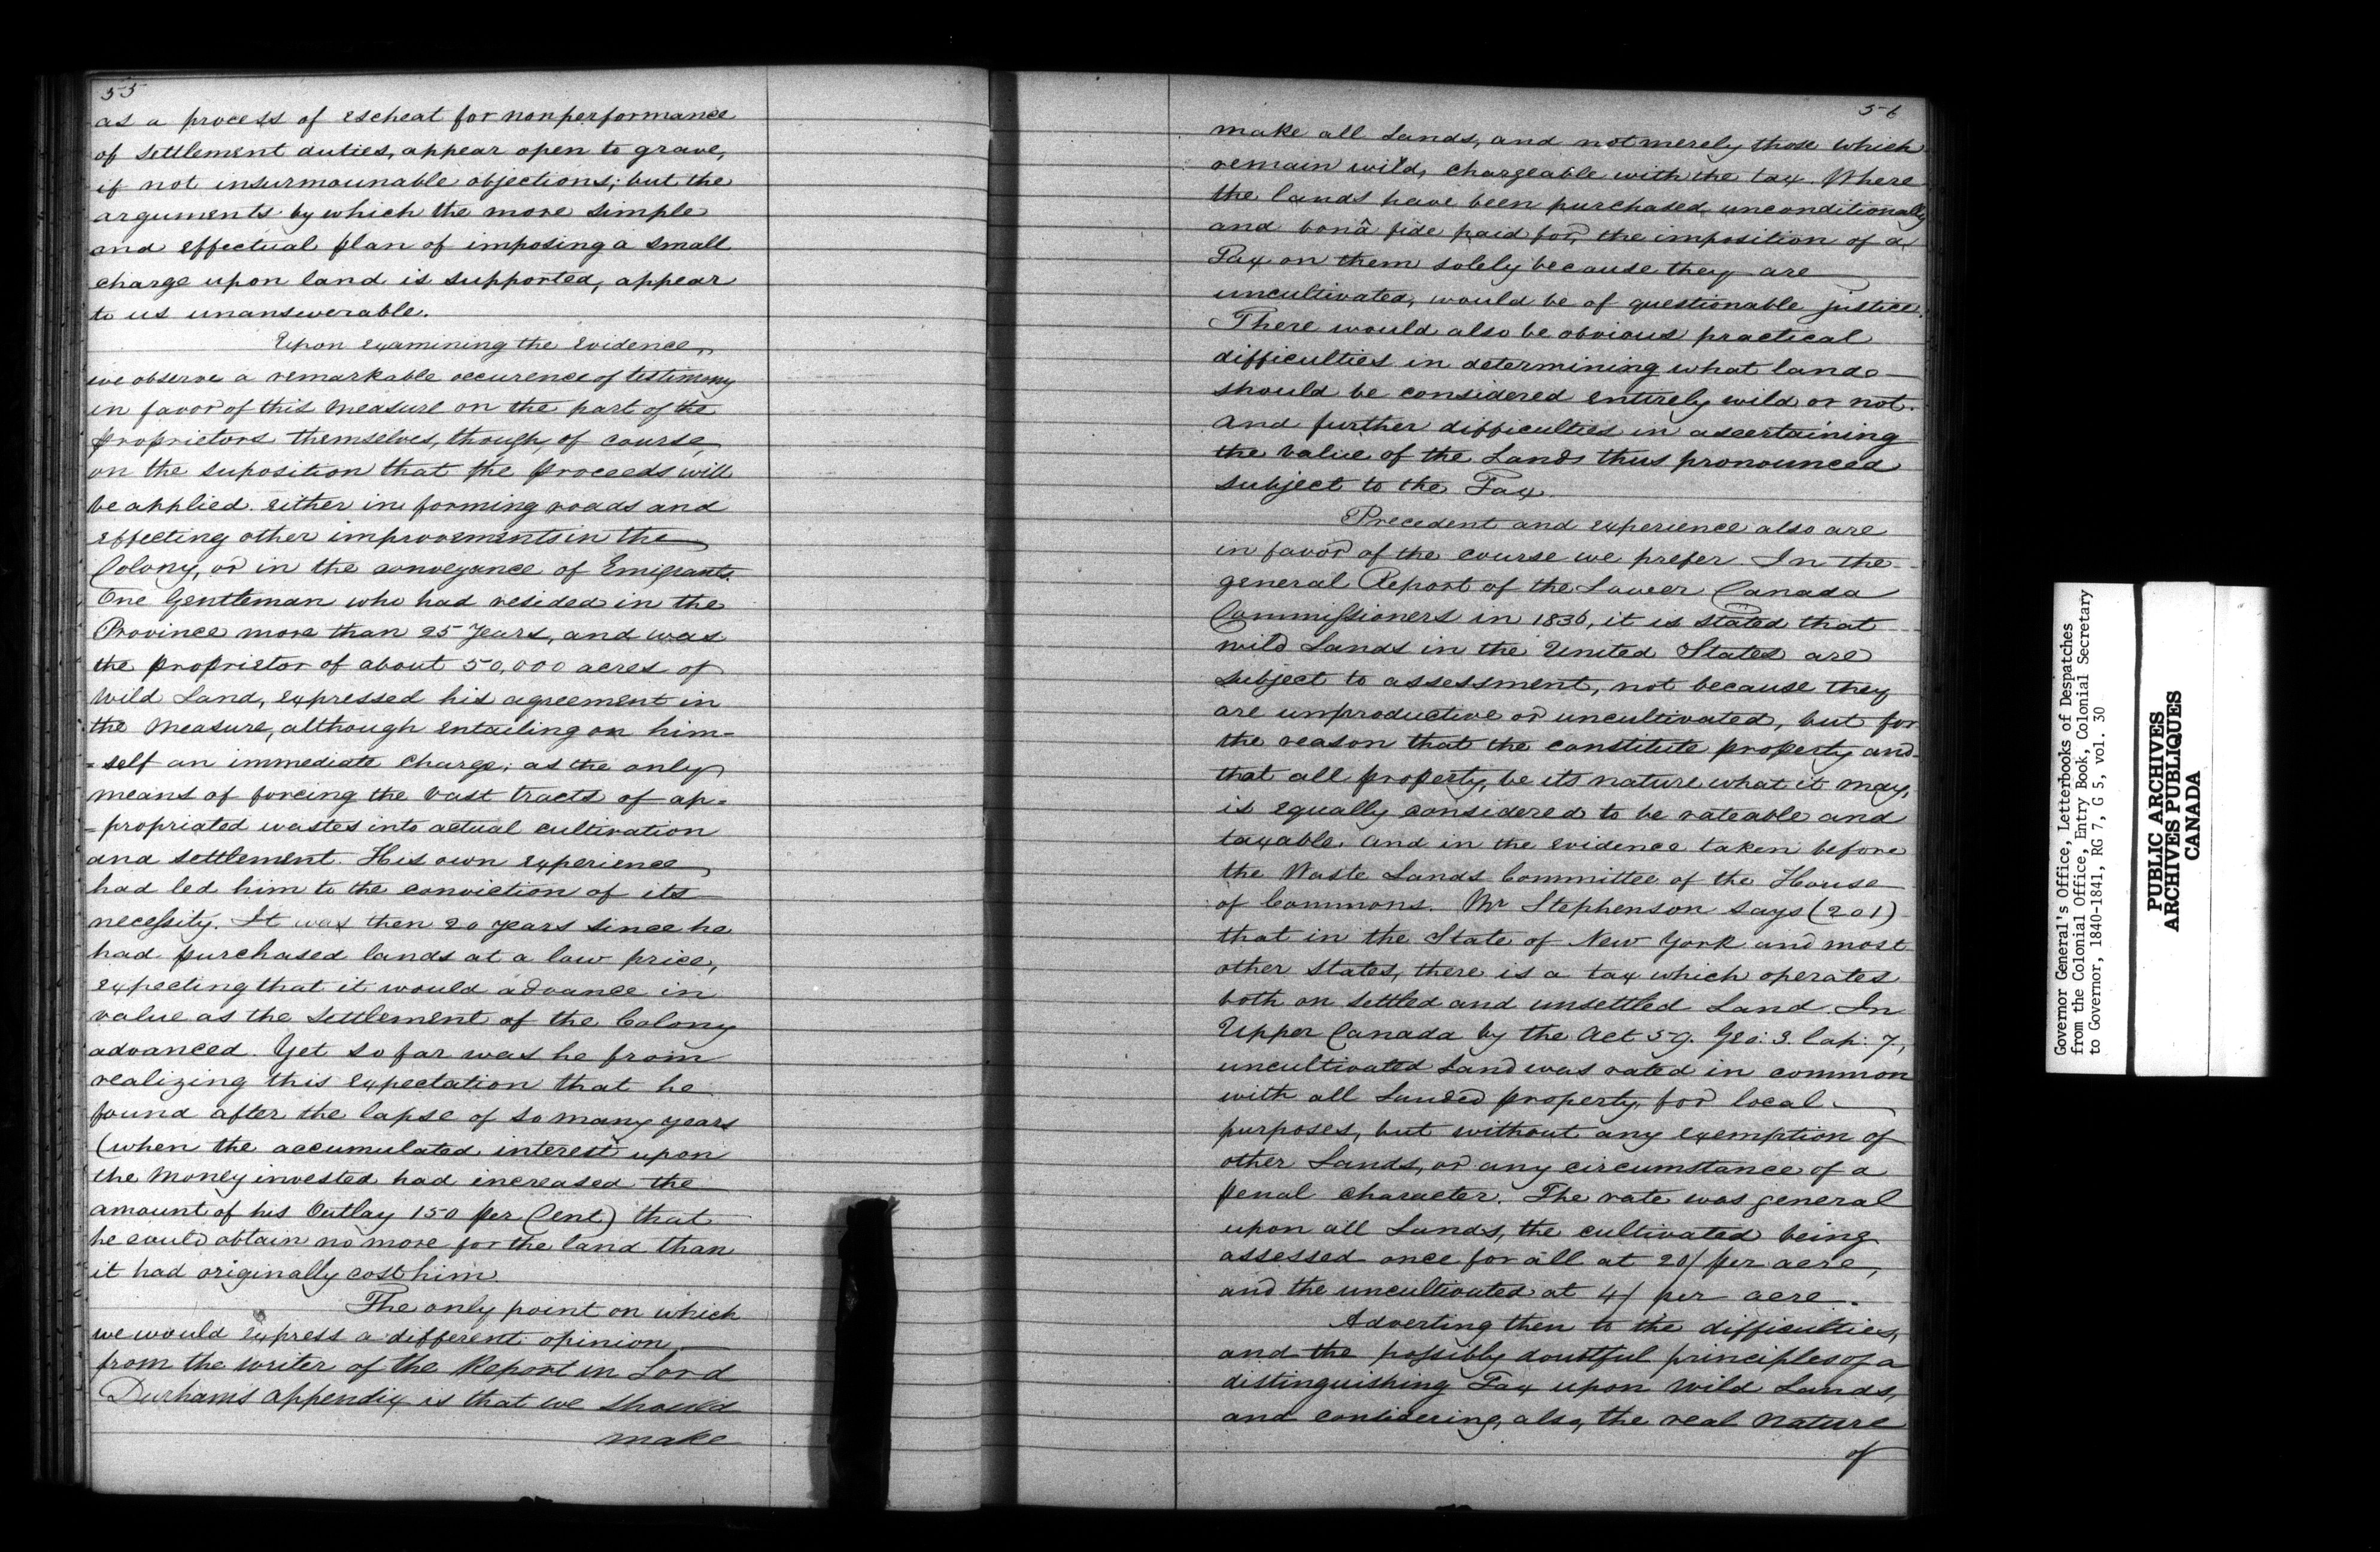 55
as a process of escheat for nonperformance
of settlement duties, appear open to grave,
if not insurmounable objections; but the
arguments by which the more simple
and effectual plan of imposing a small
charge upon land is supported, appear
to us unanswerable.
Upon examining the evidence,
we observe a remarkable occurence of testimony
in favor of this measure on the part of the
proprietors themselves, though, of course,
on the suposition that the proceeds will
be applied either in forming roads and
effecting other improvements in the
Colony, or in the conveyance of Emigrants.
One Gentleman who had resided in the
Province more than 25 Years, and was
the proprietor of about 50,000 acres of
Wild Land, expressed his agreement in
the measure, although entailing on him=
=self an immediate charge; as the only
means of forcing the vast tracts of ap=
=propriated wastes into actual cultivation
and settlement. His own experience
had led him to the conviction of its
necessity. It was then 20 years since he
had purchased lands at a low price,
expecting that it would advance in
value as the settlement of the Colony
advanced. Yet so far was he from
realizing this expectation that he
found after the lapse of so many years
(when the accumulated interest upon
the money invested had increased the
amount of his Outlay 150 per Cent) that
he could obtain no more for the land than
it had originally cost him
The only point on which
we would express a different opinion
from the writer of the Report in Lord
Durhams appendix is that we should
make
56
make all Lands, and not merely those which
remain wild, chargeable with the tax. Where
the lands have been purchased unconditionally
and bonâ fide paid for, the imposition of a
Tax on them solely because they are
uncultivated, would be of questionable justice.
There would also be obvious practical
difficulties in determining what lands
should be considered entirely wild or not.
and further difficulties in ascertaining
the value of the Lands thus pronounced
subject to the Tax.
Precedent and experience also are
in favor of the course we prefer. In the
general Report of the Lower Canada
Commissioners in 1836, it is stated that
wild Lands in the United States are
subject to assessment, not because they
are unproductive or uncultivated, but for
the reason that the constitute property and
that all property, be its nature what it may,
is equally considered to be rateable and
taxable. and in the evidence taken before
the Waste Lands Committee of the House
of Commons. Mr Stephenson says (201)
that in the State of New York and most
other States, there is a tax which operates
both on settled and unsettled Land. In
Upper Canada by the Act 59. Geo: 3. Cap: 7,
uncultivated Land was rated in common
with all Landed property, for local
purposes, but without any exemption of
other Lands, or any circumstance of a
penal character. The rate was general
upon all Lands, the cultivated being
assessed once for all at 20/ per acre,
and the uncultivated at 4/ per acre.
Adverting then to the difficulties,
and the possibly doubtful principles of a
distinguishing Tax upon Wild Lands,
and considering, also, the real nature
of
Governor General's Office, Letterbooks of Despatches
from the Colonial Office, Entry Book, Colonial Secretary
to Governor, 1840-1841, RG 7, G 5, vol. 30
PUBLIC ARCHIVES
ARCHIVES PUBLIQUES
CANADA